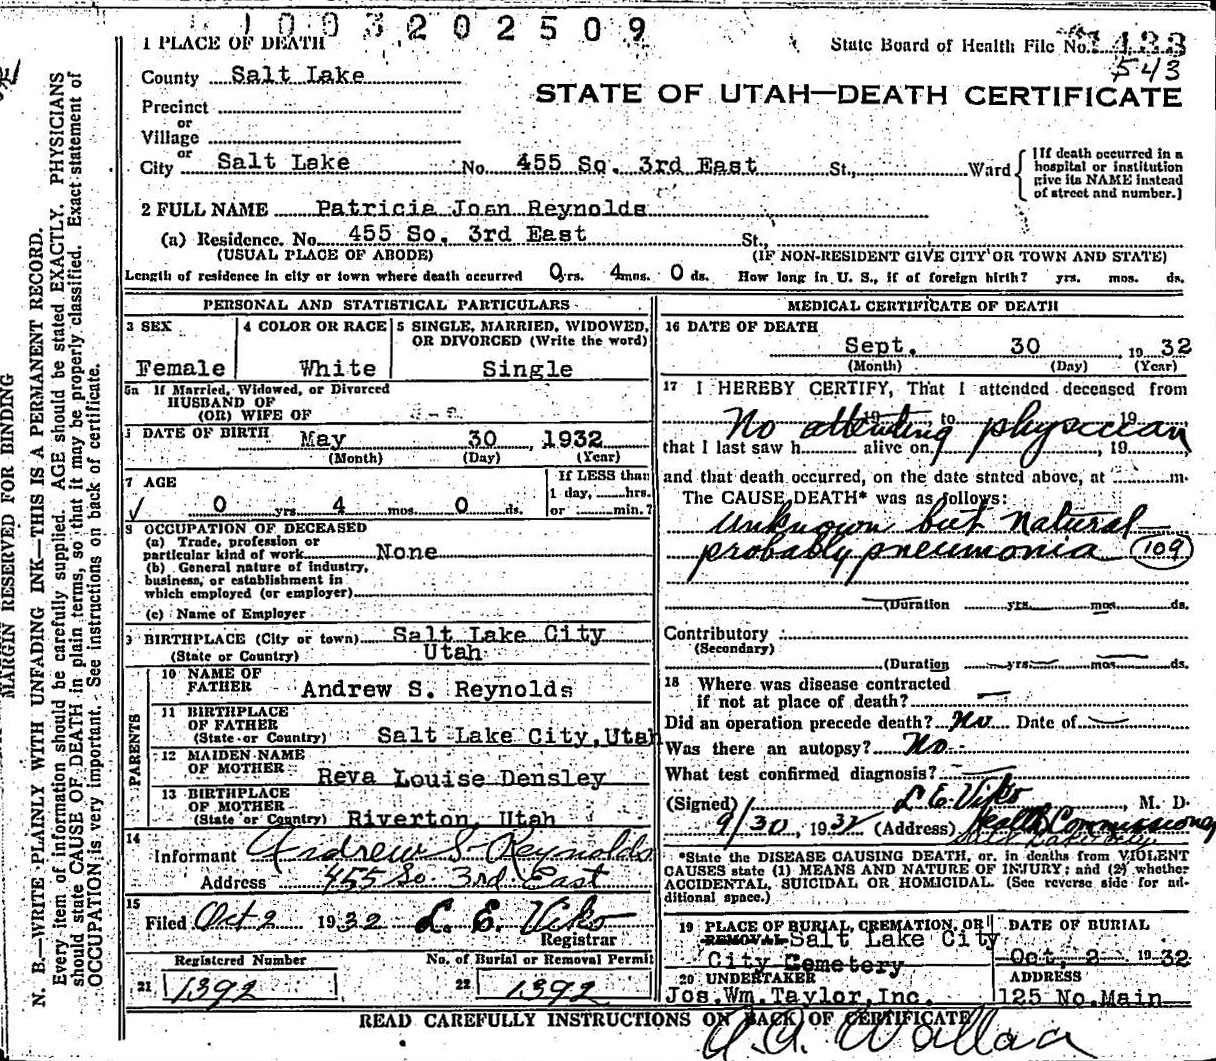 1003202509
1 PLACE OF DEATH
State Board of Health File No.
543
County Salt Lake
STATE OF UTAH—DEATH CERTIFICATE
Precinct
or
Village
or
City Salt Lake No. 455 So. 3rd East St., Ward
[If death occurred in a hospital or institution give its NAME instead of street and number.]
2 FULL NAME Patricia Joan Reynolds
(a) Residence. No. 455 So. 3rd East St.,
(USUAL PLACE OF ABODE) (IF NON-RESIDENT GIVE CITY OR TOWN AND STATE)
Length of residence in city or town where death occurred 0 yrs. 4 mos. 0 ds. How long in U. S., if of foreign birth? yrs. mos. ds.
PERSONAL AND STATISTICAL PARTICULARS
3 SEX 4 COLOR OR RACE 5 SINGLE, MARRIED, WIDOWED, OR DIVORCED (Write the word)
Female White Single
5a If Married, Widowed, or Divorced
HUSBAND OF
(OR) WIFE OF
DATE OF BIRTH May 30 1932
(Month) (Day) (Year)
7 AGE
0 yrs. 4 mos. 0 ds.
If LESS than
1 day, hrs.
or min.?
8 OCCUPATION OF DECEASED
(a) Trade, profession or
particular kind of work None
(b) General nature of industry,
business, or establishment in
which employed (or employer)
(c) Name of Employer
9 BIRTHPLACE (City or town) Salt Lake City
(State or Country) Utah
PARENTS
10 NAME OF
FATHER Andrew S. Reynolds
11 BIRTHPLACE
OF FATHER
(State or Country) Salt Lake City, Utah
12 MAIDEN NAME
OF MOTHER Reva Louise Densley
13 BIRTHPLACE
OF MOTHER
(State or Country) Riverton, Utah
14
Informant Andrew S. Reynolds
Address 455 So 3rd East
15
Filed Oct 2 1932 L. E. Viko
Registrar
Registered Number No. of Burial or Removal Permit
21 1392 22 1392
MEDICAL CERTIFICATE OF DEATH
16 DATE OF DEATH
Sept. 30, 1932
(Month) (Day) (Year)
17 I HEREBY CERTIFY, That I attended deceased from
19 to 19
No attending physician
that I last saw h alive on , 19 ,
and that death occurred, on the date stated above, at m.
The CAUSE DEATH* was as follows:
Unknown but natural
probably pneumonia 109
(Duration yrs. mos. ds.
Contributory
(Secondary)
(Duration yrs. mos. ds.
18 Where was disease contracted
if not at place of death?
Did an operation precede death? No Date of
Was there an autopsy? No
What test confirmed diagnosis?
(Signed) L E Viko, M. D.
9/30, 1932 (Address) Health Commissioner
Salt Lake City
*State the DISEASE CAUSING DEATH, or, in deaths from VIOLENT
CAUSES state (1) MEANS AND NATURE OF INJURY; and (2) whether
ACCIDENTAL, SUICIDAL OR HOMICIDAL. (See reverse side for additional space.)
19 PLACE OF BURIAL, CREMATION, OR REMOVAL Salt Lake City
City Cemetery
DATE OF BURIAL
Oct. 2 1932
20 UNDERTAKER ADDRESS
Jos. Wm. Taylor, Inc. 125 No. Main
READ CAREFULLY INSTRUCTIONS ON BACK OF CERTIFICATE
Wallace
MARGIN RESERVED FOR BINDING
N. B.—WRITE PLAINLY WITH UNFADING INK—THIS IS A PERMANENT RECORD.
Every item of information should be carefully supplied. AGE should be stated EXACTLY. PHYSICIANS
should state CAUSE OF DEATH in plain terms, so that it may be properly classified. Exact statement of
OCCUPATION is very important. See instructions on back of certificate.